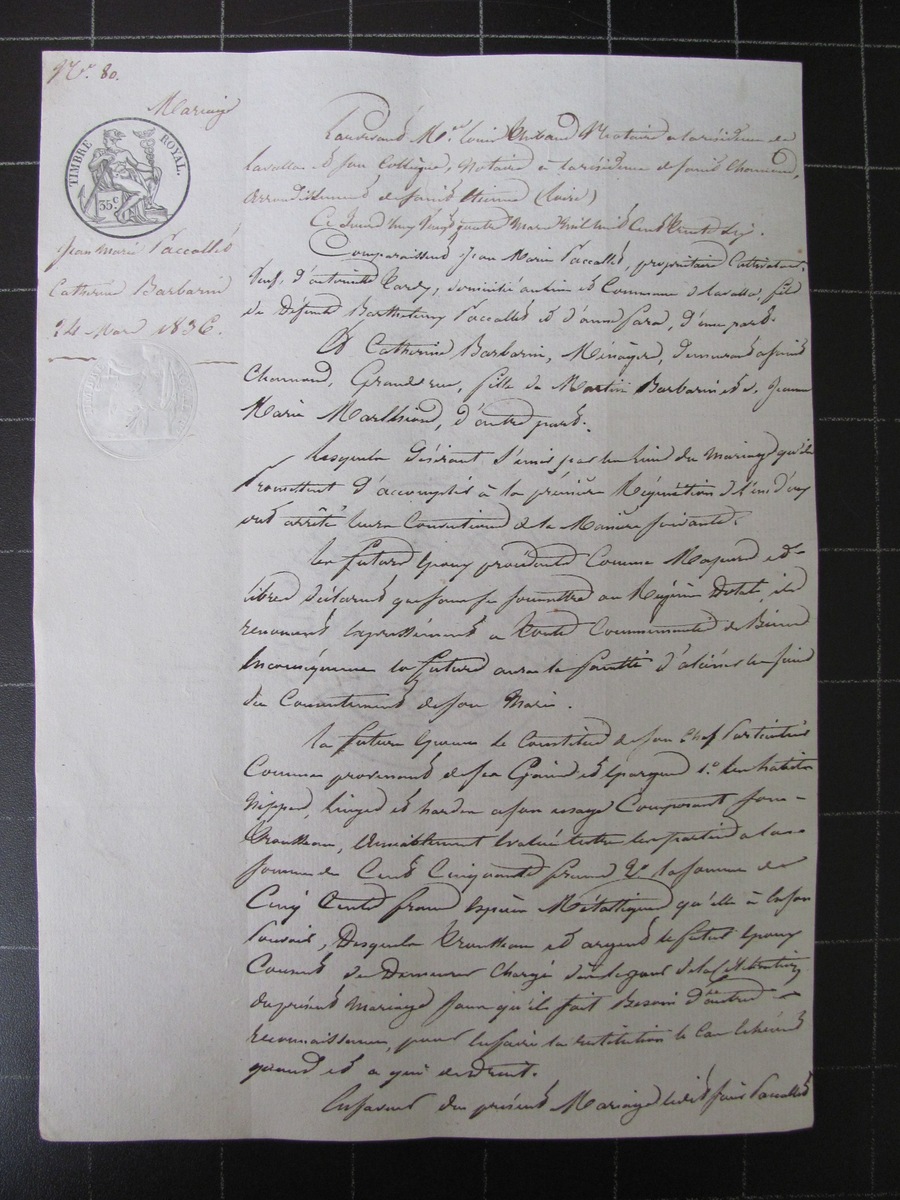 N.° 80.
Mariage
TIMBRE ROYAL.
35.c
Jean Marie Paccallet
Catherine Barbarin
24 Mars 1836.
Pardevant M.e Louis Notaire a la résidence de
Lavalla et son Collègue, Notaire à la résidence de Saint Chamond,
arrondissement de Saint Etienne (Loire)
Ce Jourd'huy Vingt quatre Mars Mil huit Cent Trente Six.
Comparaissent Jean Marie Paccallet, propriétaire Cultivateur,
Veuf, d'antoinette Tardy, domicilié au lieu et Commune de Lavalla, fils
de Défunts Barthelemy Paccallet et d'anne Fara, d'une part.
Et Catherine Barbarin, Ménagère, Demeurant a Saint
Chamond, Grande rue, fille de Martin Barbarin et de Jeanne
Marie d'autre part.
Lesquels Désirant S'unir par les liens du Mariage qu'ils
Promettent d'accomplir à la première Réquisition de l'un d'eux
ont arrêté leurs Conventions de la Manière Suivante.
Les futurs Epoux procédants Comme Majeurs et
libres déclarent que pour se soumettre au Régime Dotal, ils
renoncent Expressément a toute Communauté de Biens
En conséquence la future aura la faculté d'aliéner les siens
du Consentement de son Mari.
La future Epouse se Constitue de son Chef Particulier
Comme provenant de ses Gains et épargnes 1.° les habits
Nippes, linges et hardes a son usage Composant son
Trousseau, amiablement Evalué entre les parties a la
somme de Cent Cinquante francs 2.° la somme de
Cinq Cents francs Espèces Métalliques qu'elle à en son
Pouvoir, Desquels Trousseau et argent le futur Epoux
Consent de Demeurer Chargé dès le jour de la Célébration
du présent Mariage sans qu'il soit Besoin d'autre
reconnaissance, pour en faire la restitution le Cas échéant
quand et a qui de droit.
En faveur du présent Mariage ledit Paccallet